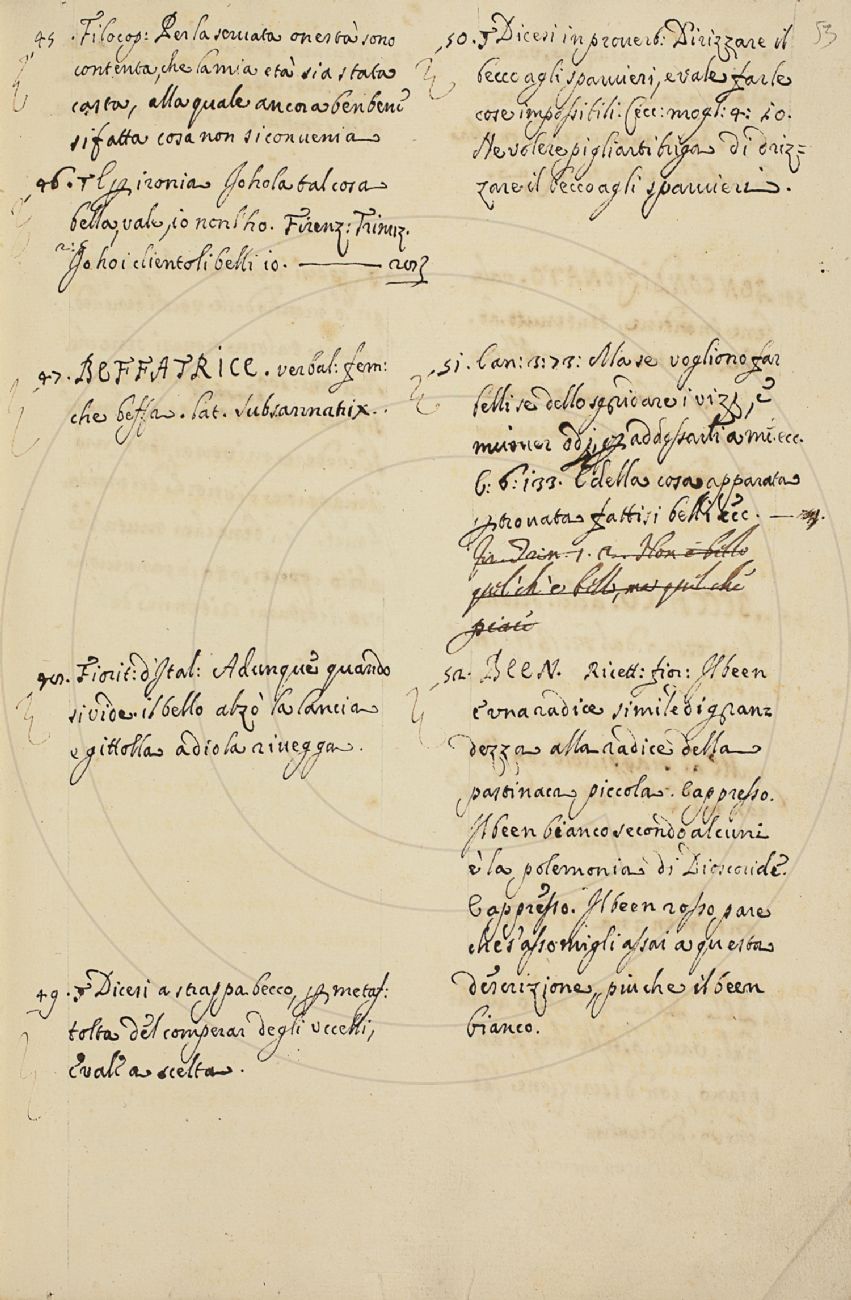 53
45. Filocop: Per la servata onestà sono
contenta, che la mia età sia stata
casta, alla quale ancora ben bene
si fatta cosa non si convenia
46. ¶ E per ironia Io ho la tal cosa
bella, vale, io non l'ho. Firenz: Trinuz.
2:5 Io ho i clientoli belli io.
47. BEFFATRICE. verbal: fem:
che beffa. lat. subsannatrix.
48. Fiorit: d'Ital: Adunque quando
si vide il bello alzò la lancia
e gittolla a dio la rivegga.
49. ¶ Dicesi a strappa becco, per metaf:
tolta del comperar degli uccelli,
e vale a scelta.
50. ¶ Dicesi in proverb: Dirizzare il
becco agli sparvieri, e vale far le
cose impossibili: Cecc: mogl: 4: 10.
Ne volere pigliarti briga di driz=
zare il becco agli sparvieri.
51. Can: 3: 73: Ma se vogliono far
belli se dello sgridare i vizi, e
muover odj, per addossarli a me. ecc.
E: 6: 133. E della cosa apparata
per trovata fattisi belli ecc.
Fir. Trin. 1. 2. Non è bello
quel ch'è bello, ma quel che
piace
52. BEEN. Ricett: fior: Il been
è una radice simile di gran=
dezza alla radice della
pastinaca piccola. E appresso.
Il been bianco secondo alcuni
è la polemonia di Dioscoride.
E appresso. Il been rosso pare
che s'assomigli assai a questa
descrizione, più che il been
bianco.